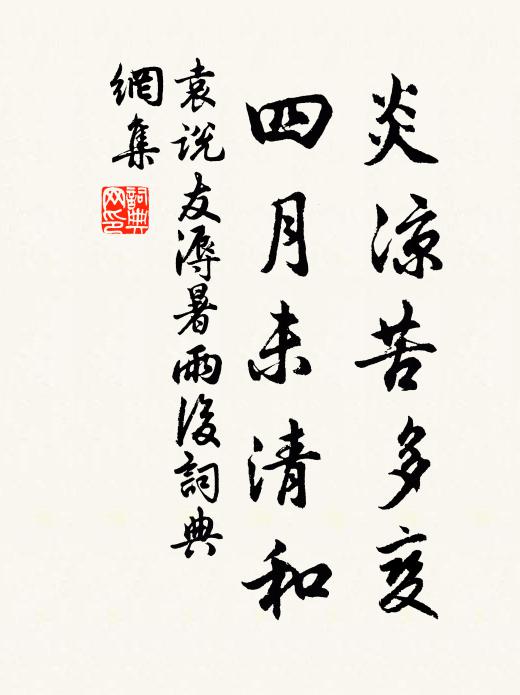 炎凉苦多变
四月未清和
袁说友溽暑雨後詞典
網集
詞典
网印